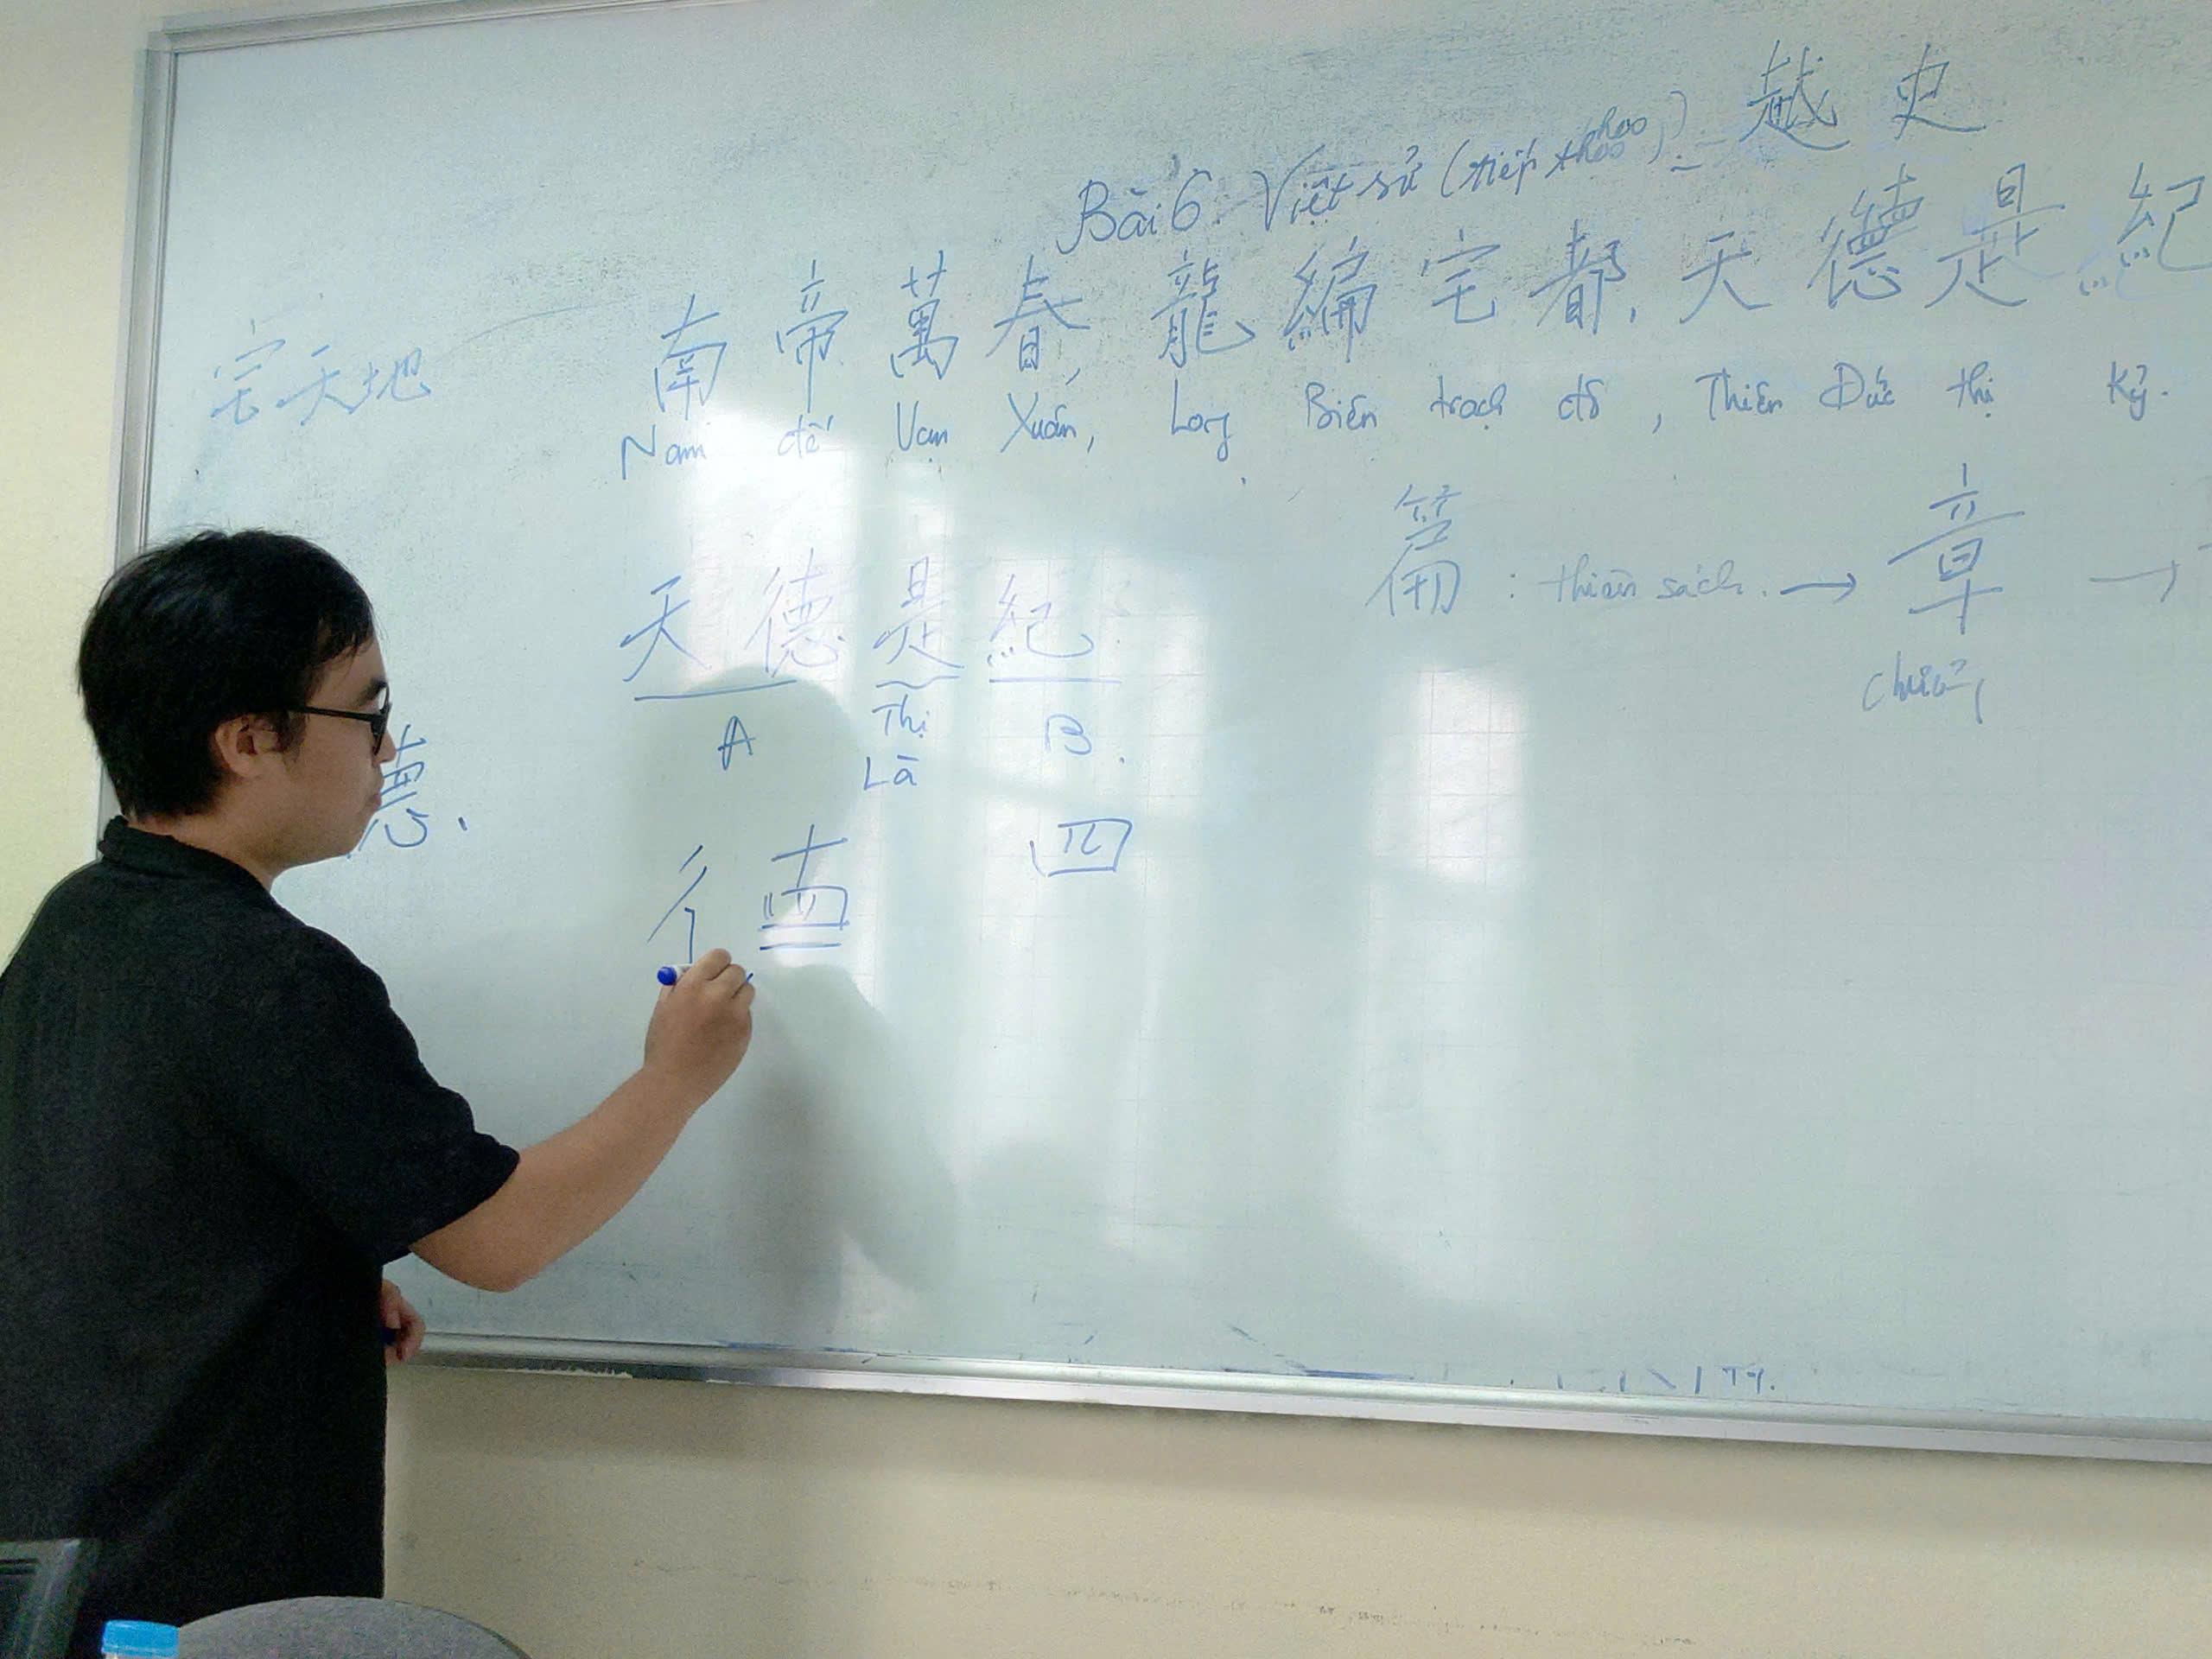 Bài 6. Việt sử (tiếp theo) 越史
南帝萬春, 龍編宅都, 天德是紀
Nam đế Vạn Xuân, Long Biên trạch đô, Thiên Đức thị kỷ.
宅天地
篇: thiên sách. → 章 →
chương
天德是紀
A Thị B.
Là
四